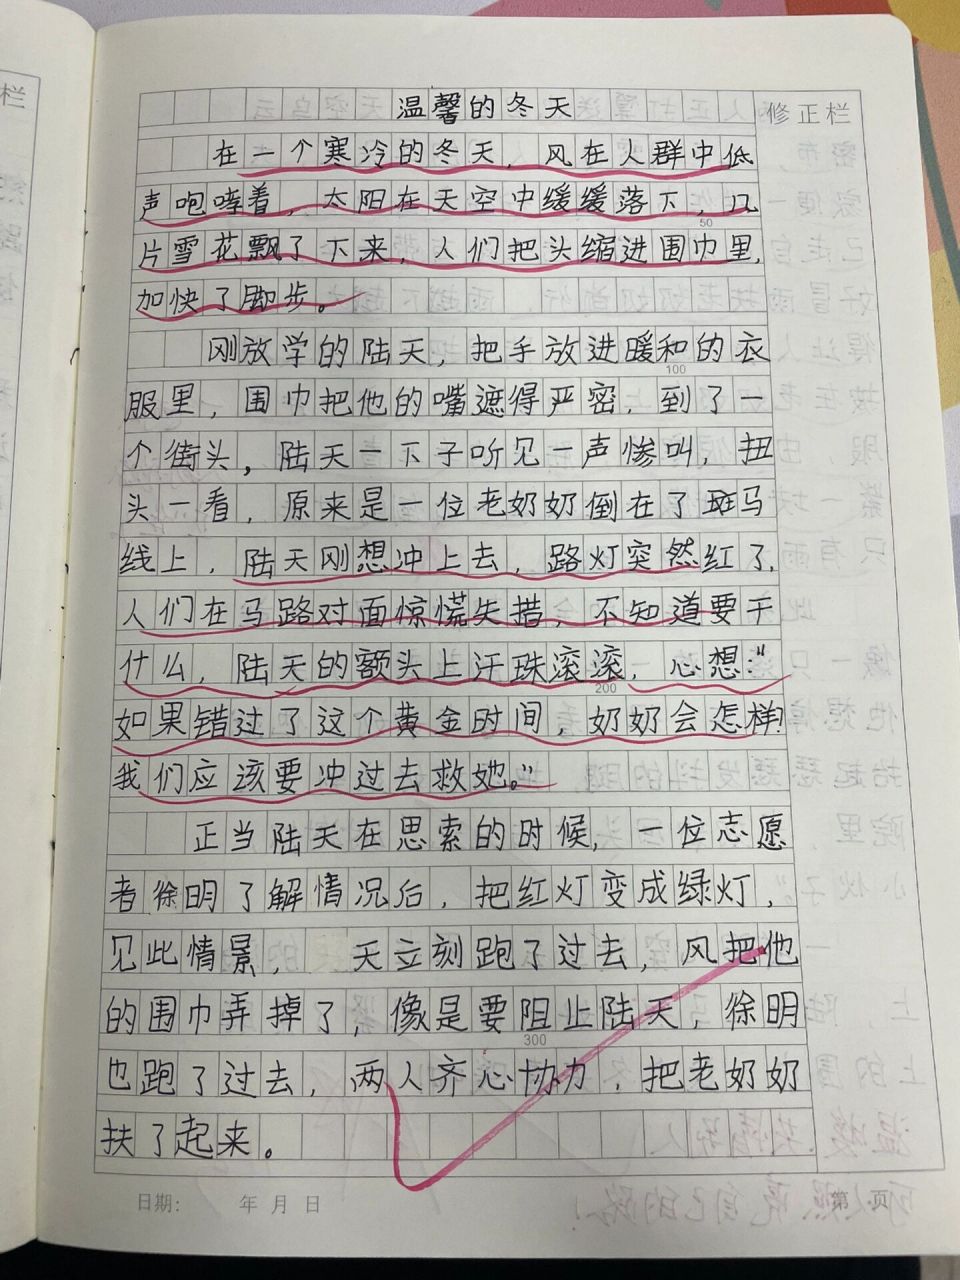 温馨的冬天
修正栏
在一个寒冷的冬天，风在人群中低
声咆哮着，太阳在天空中缓缓落下，几
50
片雪花飘了下来，人们把头缩进围巾里，
加快了脚步。
刚放学的陆天，把手放进暖和的衣
100
服里，围巾把他的嘴遮得严密，到了一
个街头，陆天一下子听见一声惨叫，扭
头一看，原来是一位老奶奶倒在了斑马
线上，陆天刚想冲上去，路灯突然红了，
人们在马路对面惊慌失措，不知道要干
什么，陆天的额头上汗珠滚滚，心想："
200
如果错过了这个黄金时间，奶奶会怎样?
我们应该要冲过去救她。"
正当陆天在思索的时候，一位志愿
者徐明了解情况后，把红灯变成绿灯，
见此情景，天立刻跑了过去，风把他
的围巾弄掉了，像是要阻止陆天，徐明
300
也跑了过去，两人齐心协力，把老奶奶
扶了起来。
日期： 年 月 日
第 页
栏